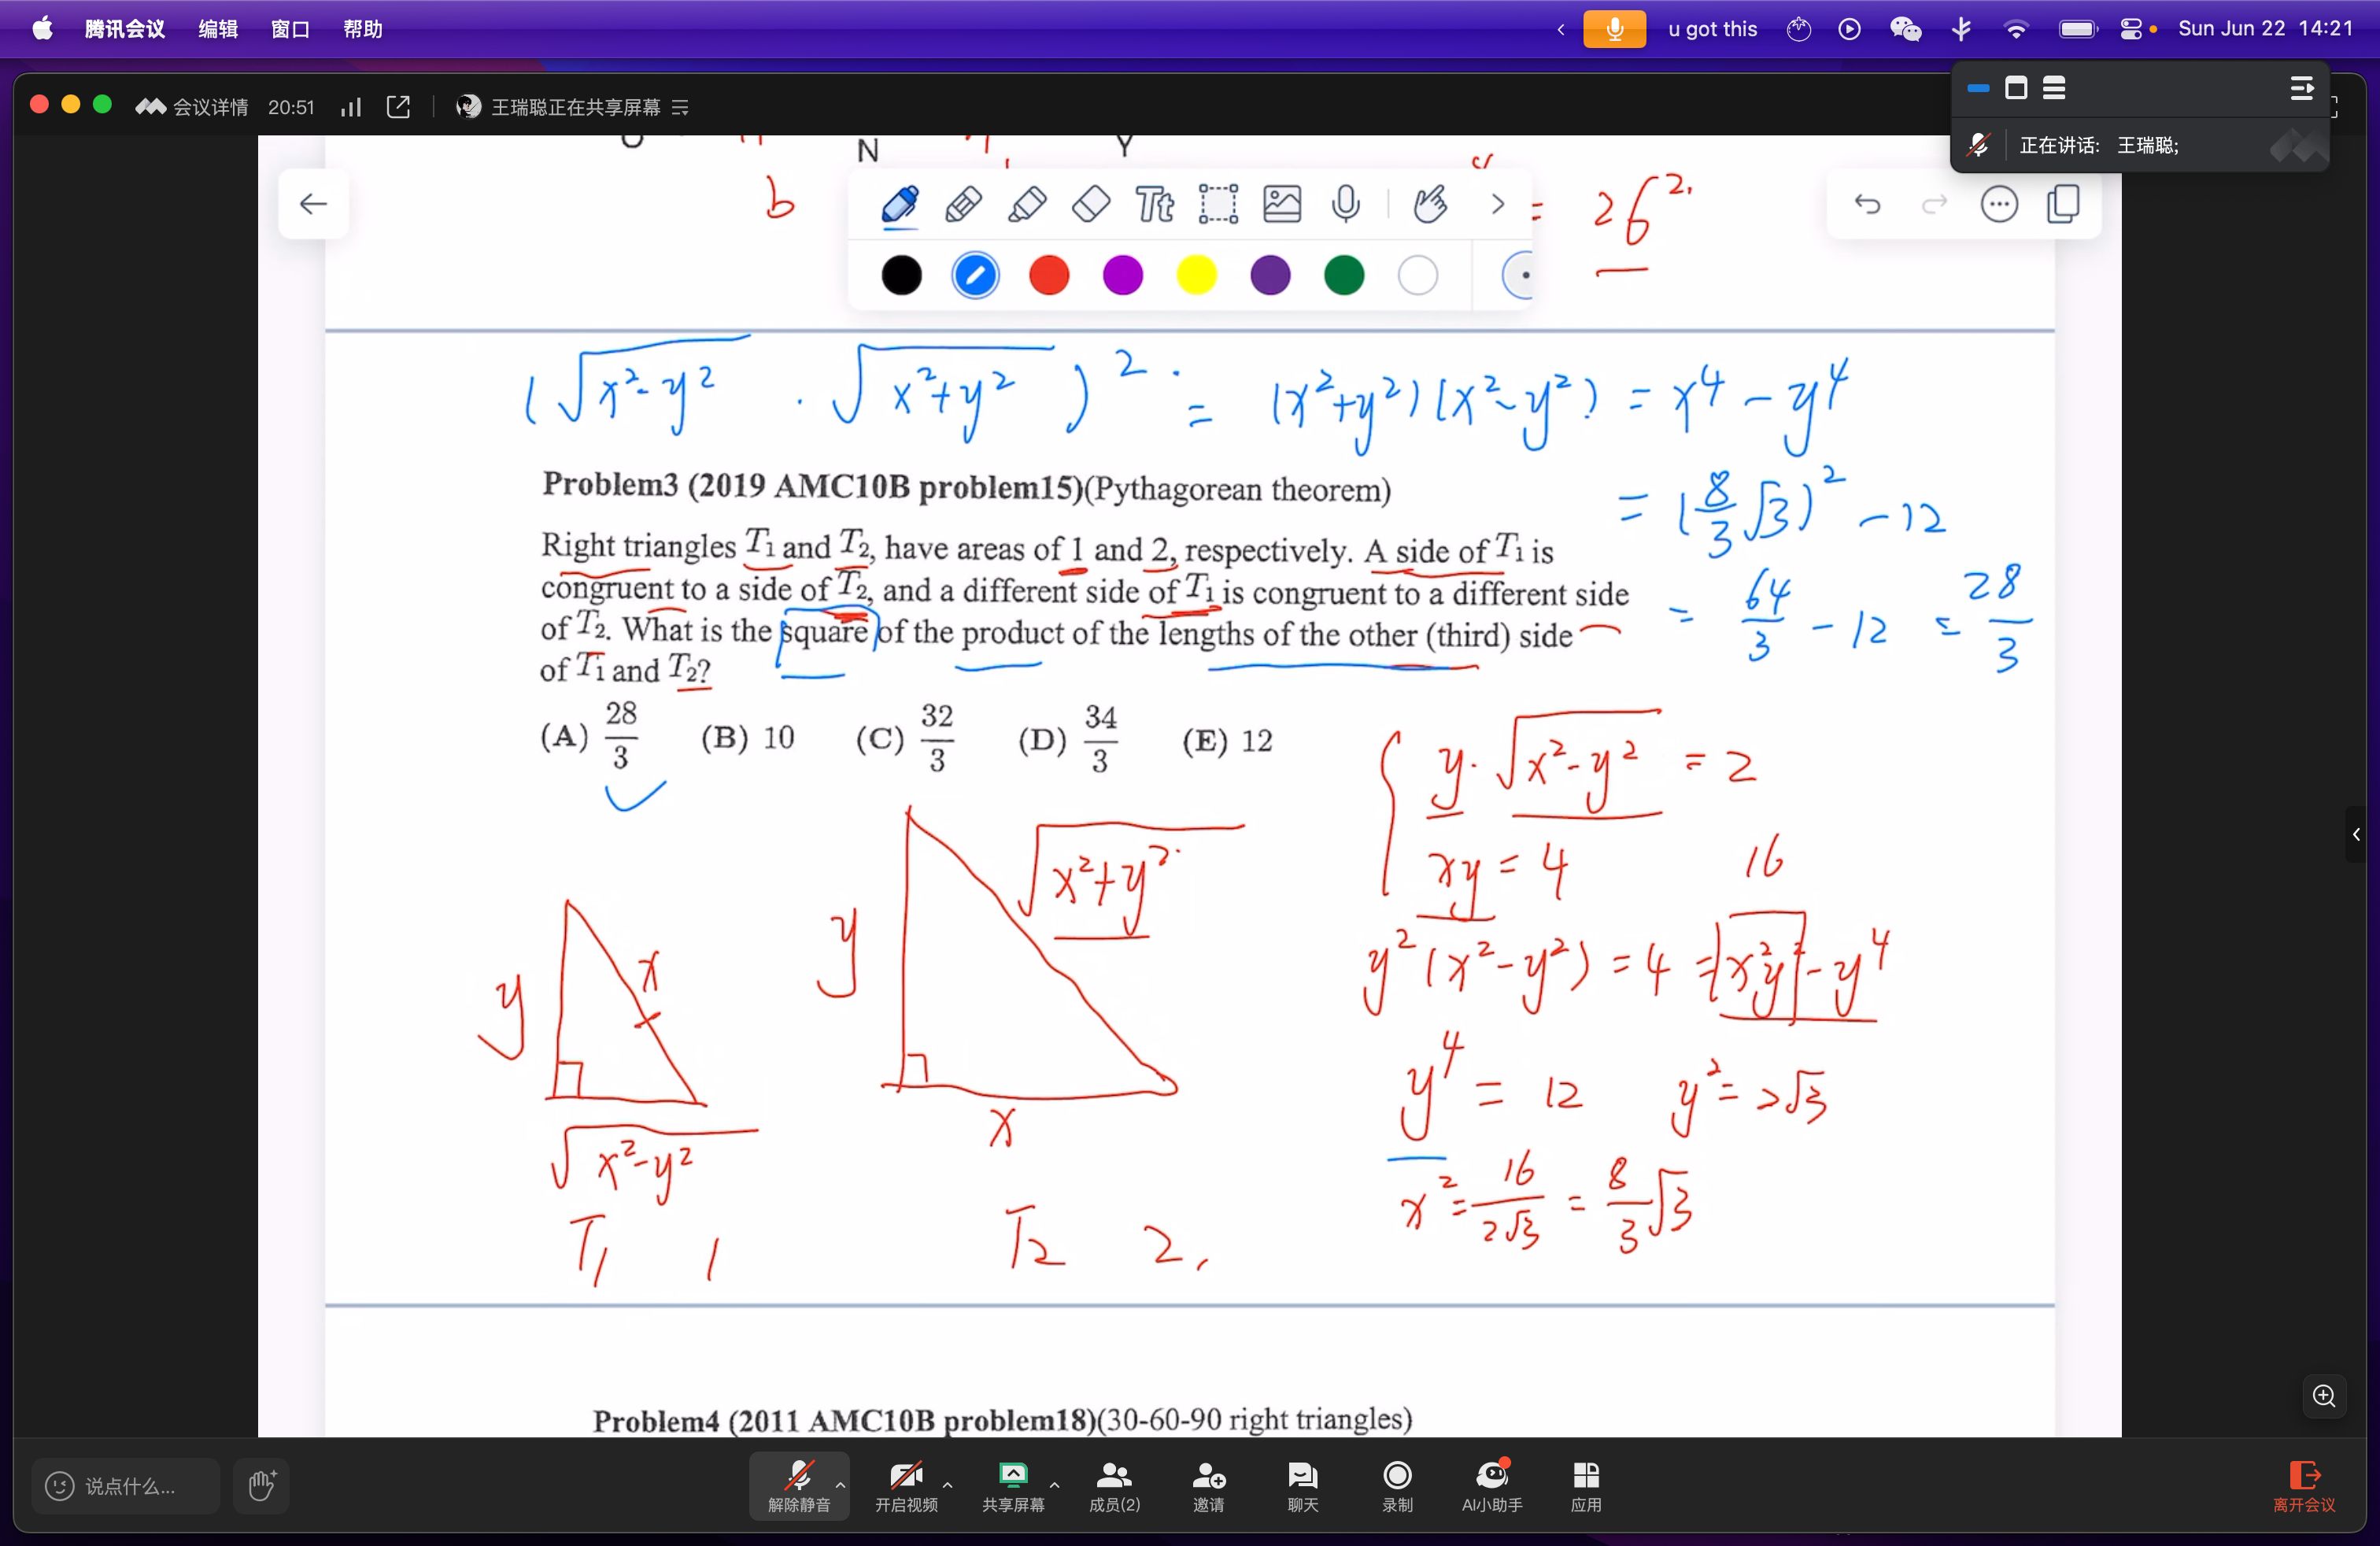 腾讯会议 编辑 窗口 帮助 u got this Sun Jun 22 14:21
会议详情 20:51 王瑞聪正在共享屏幕
正在讲话: 王瑞聪;
N Y
b = 26².
Tt
(√(x²-y²) · √(x²+y²))² = (x²+y²)(x²-y²) = x⁴ - y⁴
Problem3 (2019 AMC10B problem15)(Pythagorean theorem)
= (8/3 √3)² - 12
Right triangles T₁ and T₂, have areas of 1 and 2, respectively. A side of T₁ is
congruent to a side of T₂, and a different side of T₁ is congruent to a different side
of T₂. What is the square of the product of the lengths of the other (third) side
of T₁ and T₂?
= 64/3 - 12 = 28/3
(A) 28/3 (B) 10 (C) 32/3 (D) 34/3 (E) 12
y · √(x²-y²) = 2
xy = 4
16
y²(x²-y²) = 4 = x²y² - y⁴
y⁴ = 12 y² = 2√3
x² = 16/2√3 = 8/3 √3
y x √(x²-y²)
T₁ 1
y √(x²+y²) x
T₂ 2.
Problem4 (2011 AMC10B problem18)(30-60-90 right triangles)
说点什么...
解除静音 开启视频 共享屏幕 成员(2) 邀请 聊天 录制 AI小助手 应用 离开会议